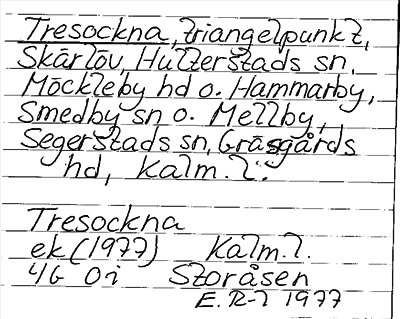 Tresockna, triangelpunkt,
Skärlöv, Hulterstads sn,
Möckleby hd o. Hammarby,
Smedby sn o. Mellby,
Segerstads sn, Gräsgårds
hd, Kalm. l.
Tresockna
ek (1977) Kalm. l.
4G 0i Storåsen
E. R-l 1977